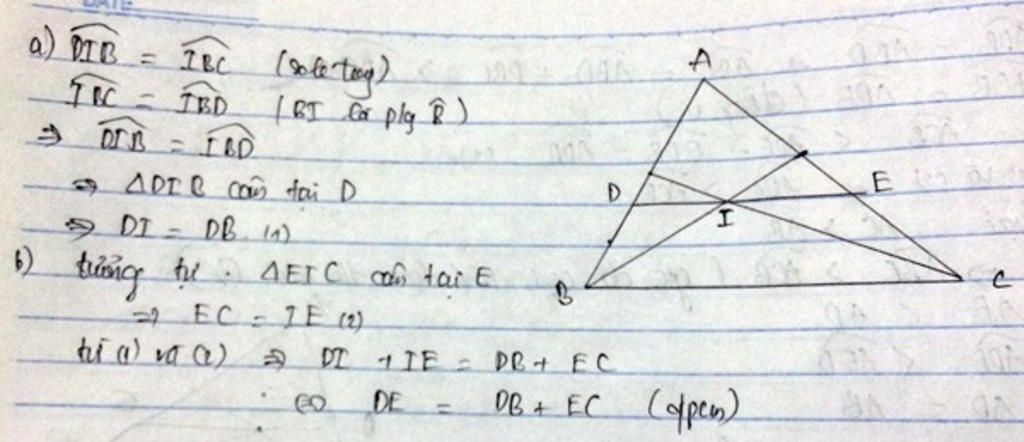 DATE
a) DIB = IBC (so le trong)
IBC = IBD (BI là p/g B)
⇒ DIB = IBD
⇒ ΔDIB cân tại D
⇒ DI = DB (1)
b) tương tự . ΔEIC cân tại E
⇒ EC = IE (2)
từ (1) và (2) ⇒ DI + IE = DB + EC
⇔ DE = DB + EC (đpcm)
A
D
E
I
B
C